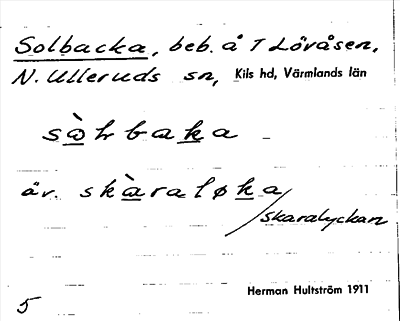 Solbacka, beb. å T Lövåsen,
N. Ulleruds sn, Kils hd, Värmlands län
sὼlrbaka
äv. skàraløka/
skaralyckan
Herman Hultström 1911
5